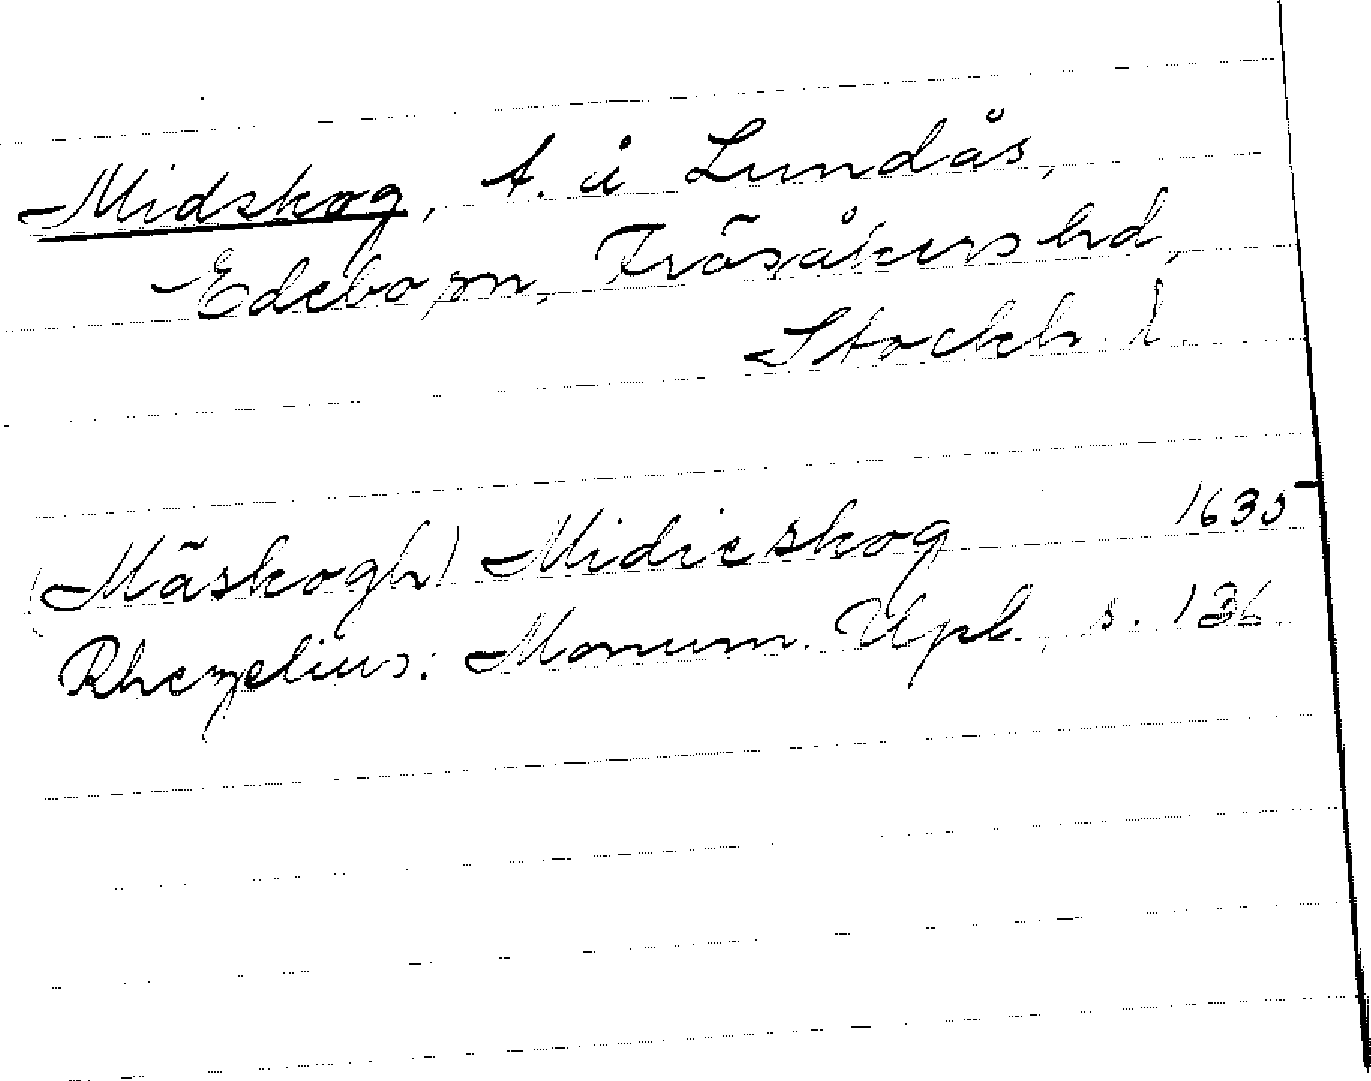 Midskog, t. å Lundås,
Edebo sn, Frösåkers hd,
Stockh. l.
(Mäskogh) Midieskog 1635
Rhezelius: Monum. Upl., s. 136